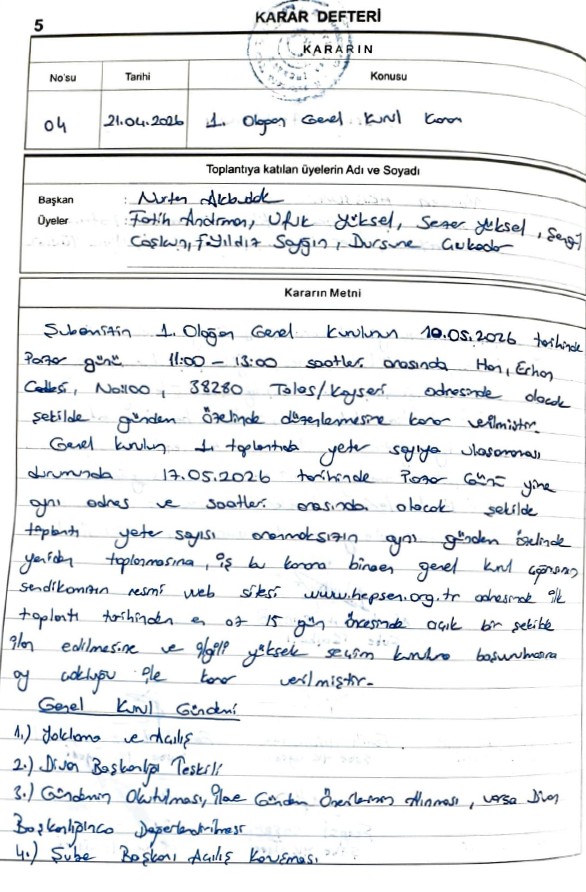 5
KARAR DEFTERİ
KARARIN
No'su
Tarihi
Konusu
04
21.04.2026
1. Olağan Genel Kurul Kararı
Toplantıya katılan üyelerin Adı ve Soyadı
Başkan : Nurten
Üyeler : Fatih Andırman, Ufuk Yüksel, Sezer Yüksel, Sevgi
Coşkun, F. Yıldız Saygın, Dursune
Kararın Metni
Şubemizin 1. Olağan Genel Kurulunun 10.05.2026 tarihinde
Pazar günü 11:00 - 13:00 saatleri arasında Han, Erhan
Caddesi, No:100, 38280 Talas/Kayseri adresinde olacak
şekilde gündem özelinde düzenlenmesine karar verilmiştir.
Genel kurulun 1. toplantıda yeter sayıya ulaşamaması
durumunda 17.05.2026 tarihinde Pazar Günü yine
aynı adres ve saatleri arasında olacak şekilde
toplantı yeter sayısı aranmaksızın aynı gündem özelinde
yeniden toplanmasına, iş bu karara binaen genel kurul
sendikamızın resmi web sitesi www.hepsen.org.tr adresinde ilk
toplantı tarihinden en az 15 gün öncesinde açık bir şekilde
ilan edilmesine ve ilgili yüksek seçim kuruluna başvurulmasına
oy çokluğu ile karar verilmiştir.
Genel Kurul Gündemi
1.) Yoklama ve Açılış
2.) Divan Başkanlığı Teşkili
3.) Gündemin Okutulması, İlave Gündem Önerilerinin Alınması, varsa Divan
Başkanlığınca Değerlendirilmesi
4.) Şube Başkanı Açılış Konuşması